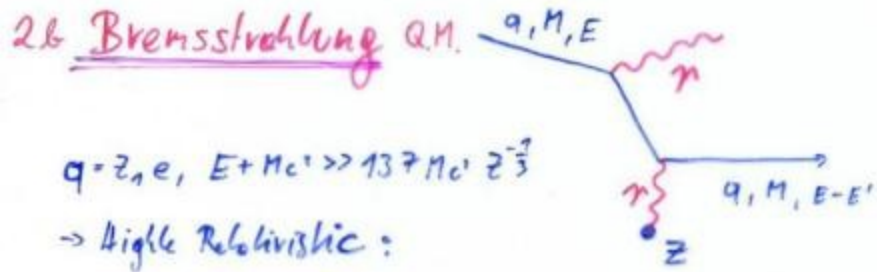 2b Bremsstrahlung Q.M.
q, M, E
γ
q = Z₁e, E + Mc² >> 137 Mc² Z^-1/3
γ
q, M, E-E'
→ Highly Relativistic:
Z